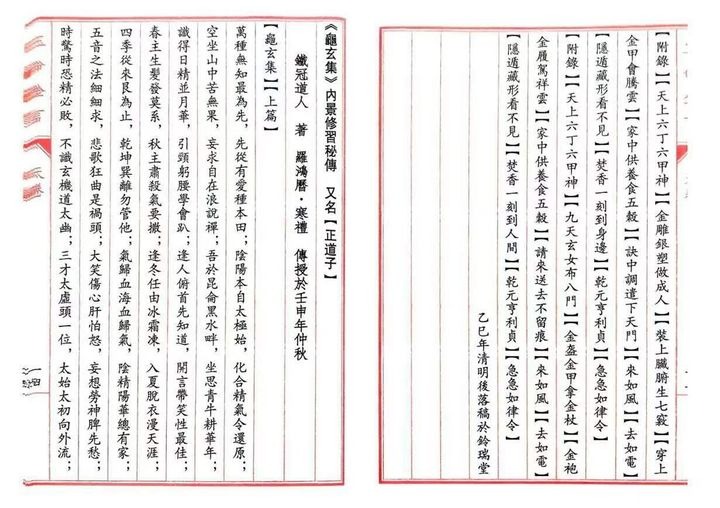 附錄】【天上六丁六甲神】【金雕銀塑做成人】【裝上臟腑生七竅】【穿上
金甲會騰雲】【家中供養食五穀】【訣中調遣下天門】【來如風】【去如電】
【隱遁藏形看不見】【焚香一刻到身邊】【乾元亨利貞】【急急如律令】
【附錄】【天上六丁六甲神】【九天玄女布八門】【金盔金甲拿金杖】【金袍
金履駕祥雲】【家中供養食五穀】【請來送去不留痕】【來如風】【去如電】
【隱遁藏形看不見】【焚香一刻到人間】【乾元亨利貞】【急急如律令】
乙巳年清明後落稿於鈴瑞堂
《龜玄集》內景修習秘傳 又名【正道子】
鐵冠道人 著 羅鴻曆·寒禮 傳授於壬申年仲秋
【龜玄集】【上篇】
萬種無知最為先，先從有愛種本田；陰陽本自太極始，化合精氣令還原；
空坐山中苦無果，妄求自在浪說禪；吾於昆侖黑水畔，坐思青牛耕華年；
識得日精並月華，引頸躬腰學會趴；逢人俯首先知道，開言帶笑性最佳；
春主生髮發莫系，秋主肅殺氣要撤；逢冬任由冰霜凍，入夏脫衣漫天涯；
四季從來艮為止，乾坤巽離勿管他；氣歸血海血歸氣，陰精陽華總有家；
五音之法細細求，悲歌狂曲是禍頭；大笑傷心肝怕怒，妄想勞神脾先愁；
時驚時恐精必敗，不識玄機道太幽；三才太虛頭一位，太始太初向外流；